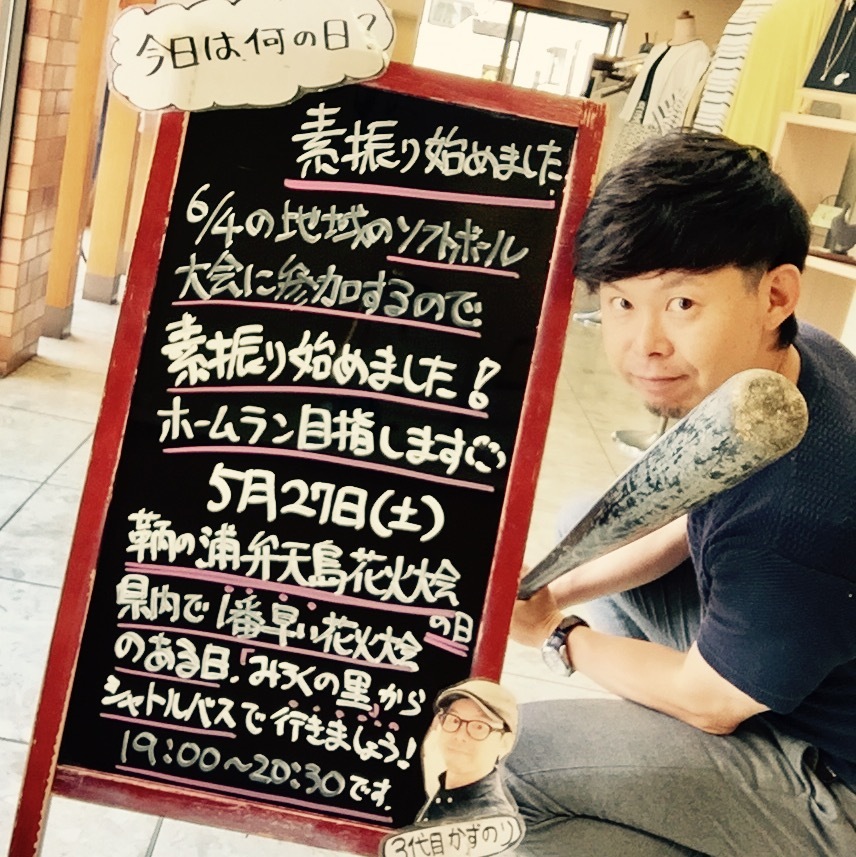 今日は何の日?
素振り始めました。
6/4の地域のソフトボール
大会に参加するので
素振り始めました!
ホームラン目指します
5月27日(土)
鞆の浦弁天島花火大会
の日
県内で1番早い花火大会
のある日。「みろくの里」から
シャトルバスで行きましょう!
19:00〜20:30です。
3代目かずのり